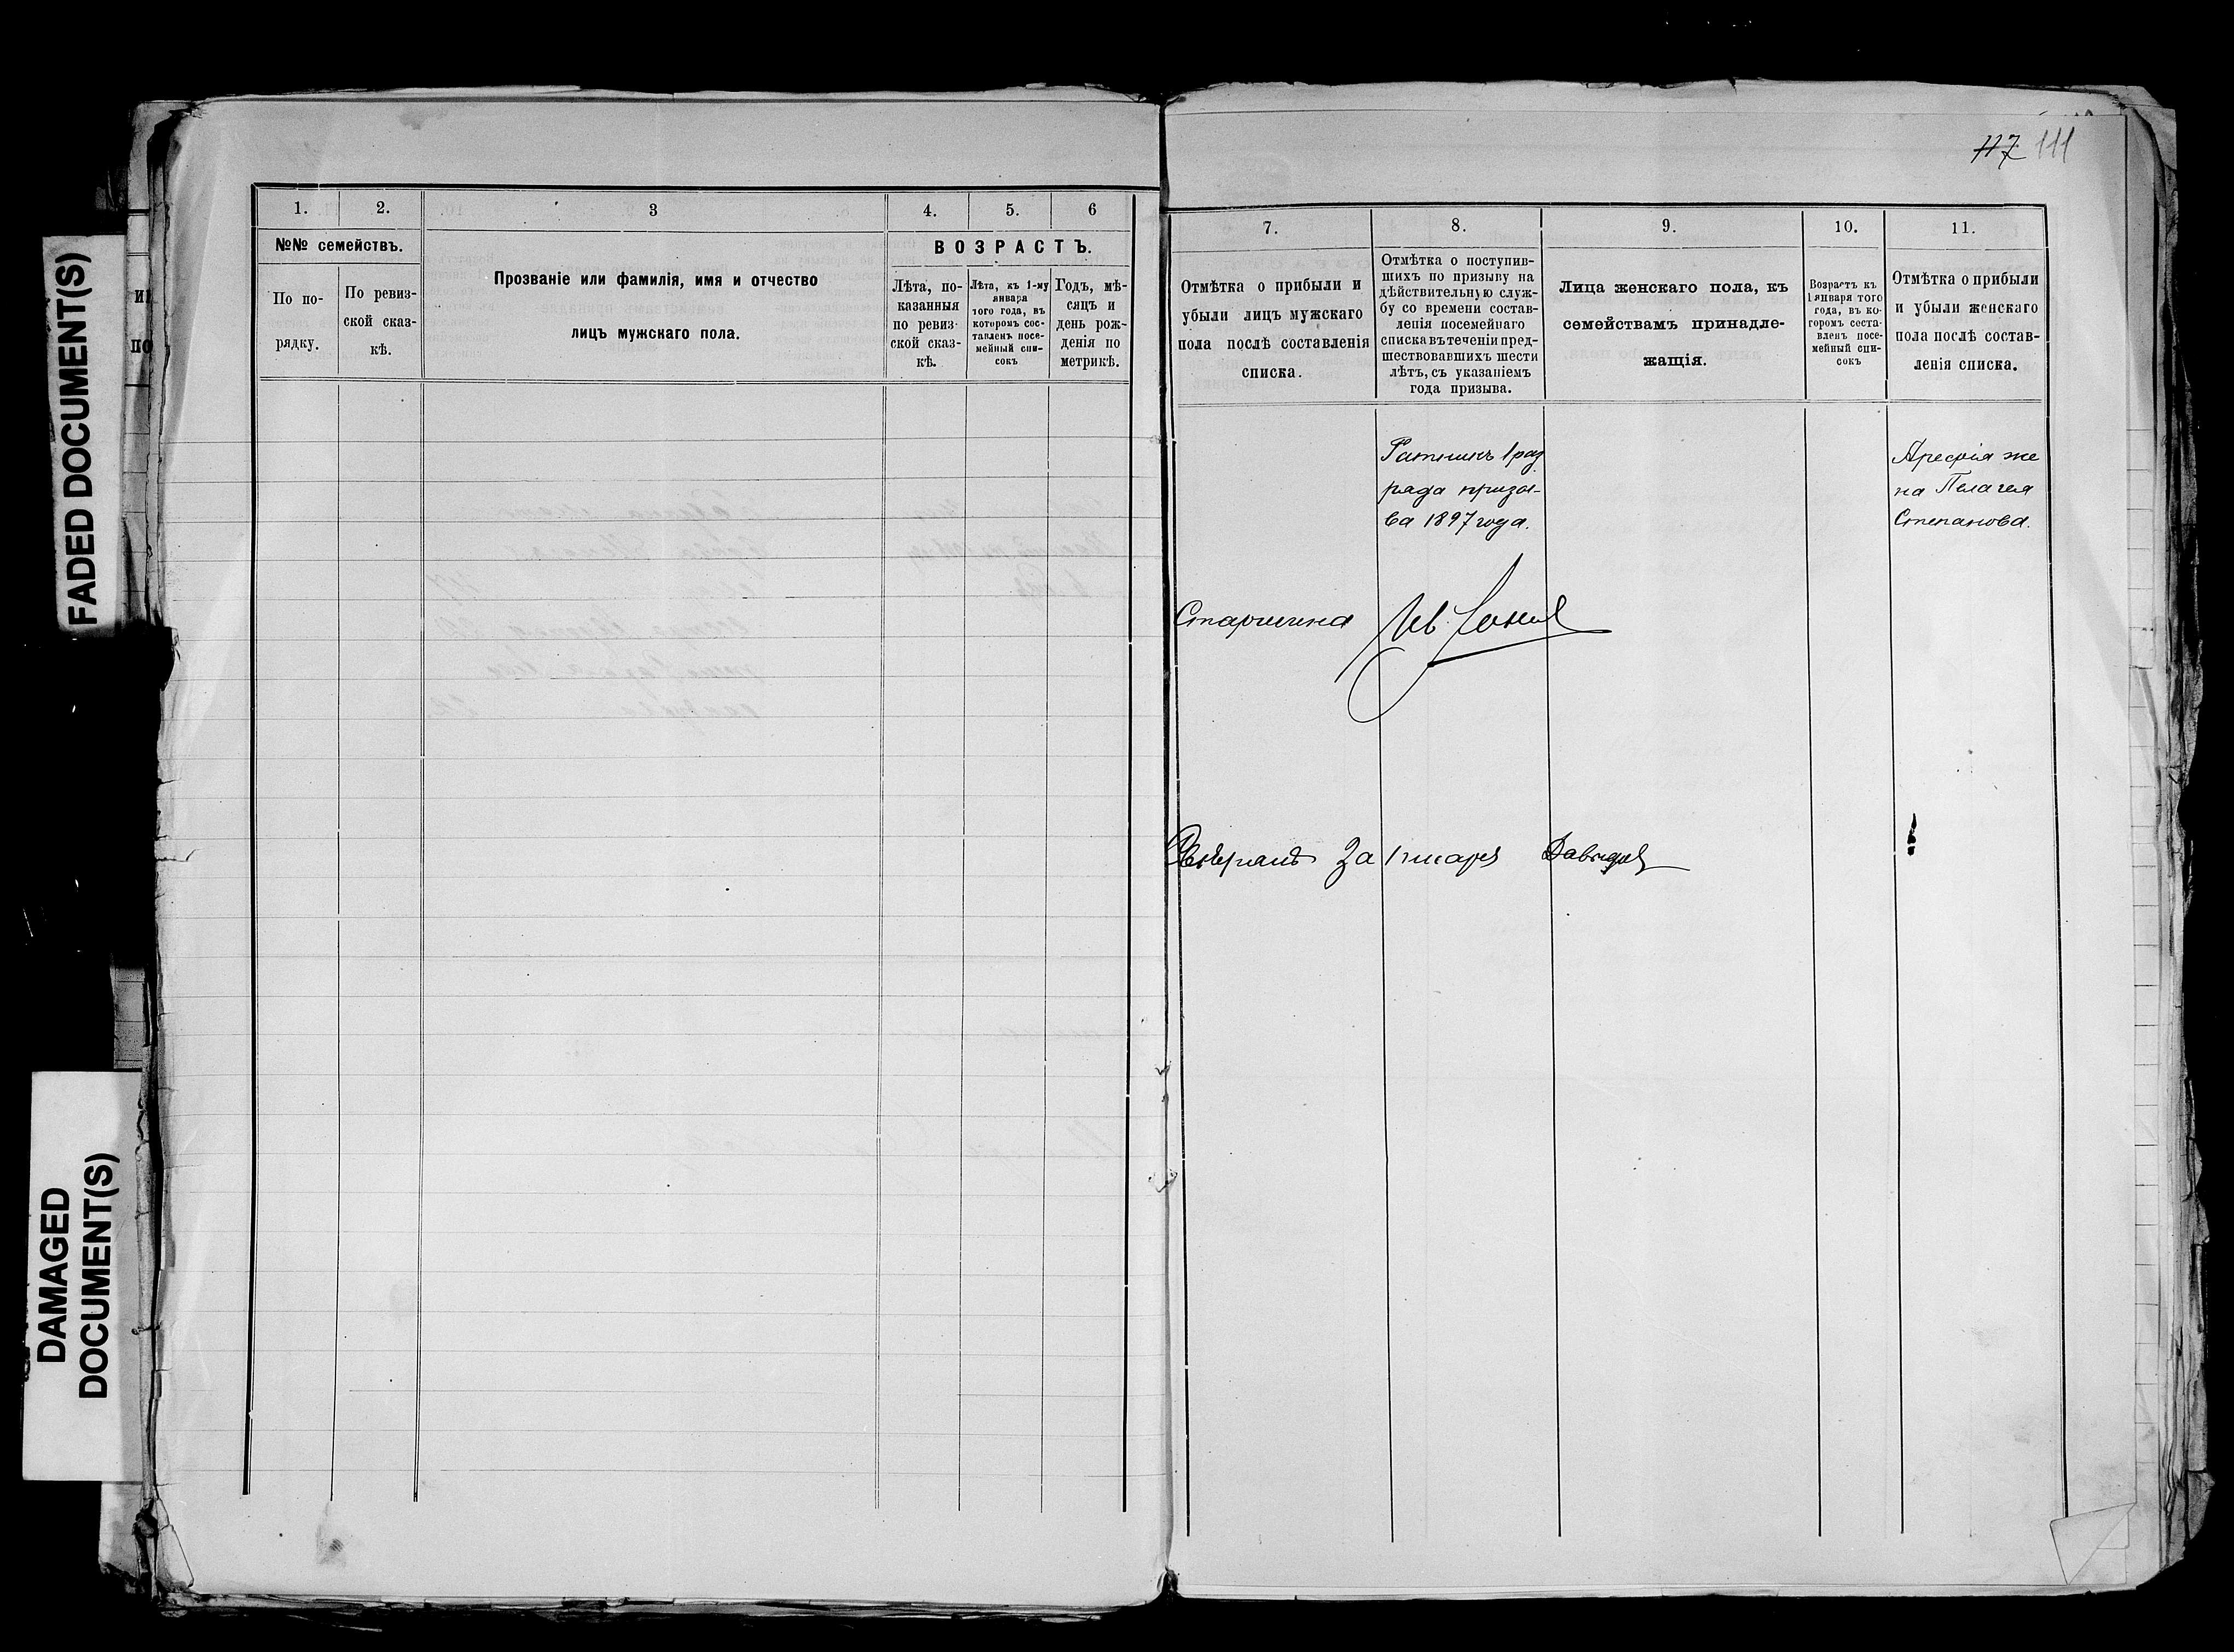 FADED DOCUMENT(S)
DAMAGED
DOCUMENT(S)
1.
2.
3
4.
5.
6
№№ семействъ.
По по-
рядку.
По ревиз-
ской сказ-
кѣ.
Прозваніе или фамилія, имя и отчество
лицъ мужскаго пола.
ВОЗРАСТЪ.
Лѣта, по-
казанныя
по ревиз-
ской сказ-
кѣ.
Лѣта, къ 1-му
января
того года, въ
которомъ сос-
тавленъ посе-
мейный спи-
сокъ
Годъ, мѣ-
сяцъ и
день рож-
денія по
метрикѣ.
117 111
7.
8.
9.
10.
11.
Отмѣтка о прибыли и
убыли лицъ мужскаго
пола послѣ составленія
списка.
Отмѣтка о поступив-
шихъ по призыву на
дѣйствительную служ-
бу со времени состав-
ленія посемейнаго
списка въ теченіи пред-
шествовавшихъ шести
лѣтъ, съ указаніемъ
года призыва.
Лица женскаго пола, къ
семействамъ принадле-
жащія.
Возрастъ къ
1 января того
года, въ ко-
торомъ соста-
вленъ посе-
мейный спи-
сокъ
Отмѣтка о прибыли
и убыли женскаго
пола послѣ состав-
ленія списка.
Ратникъ 1 раз
ряда призы-
ва 1897 года.
Арефія же
на Пелагея
Степанова.
Старшина Ив.
за писаря Давыдов